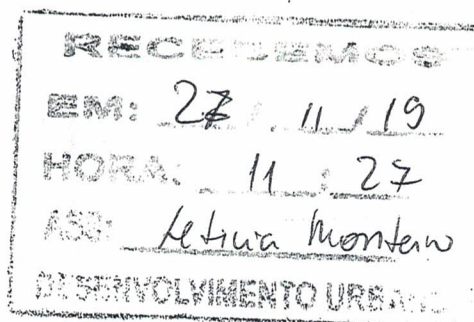 RECEBEMOS
EM: 27 / 11 / 19
HORA: 11 : 27
ASS: Leticia Monteiro
DESENVOLVIMENTO URBANO